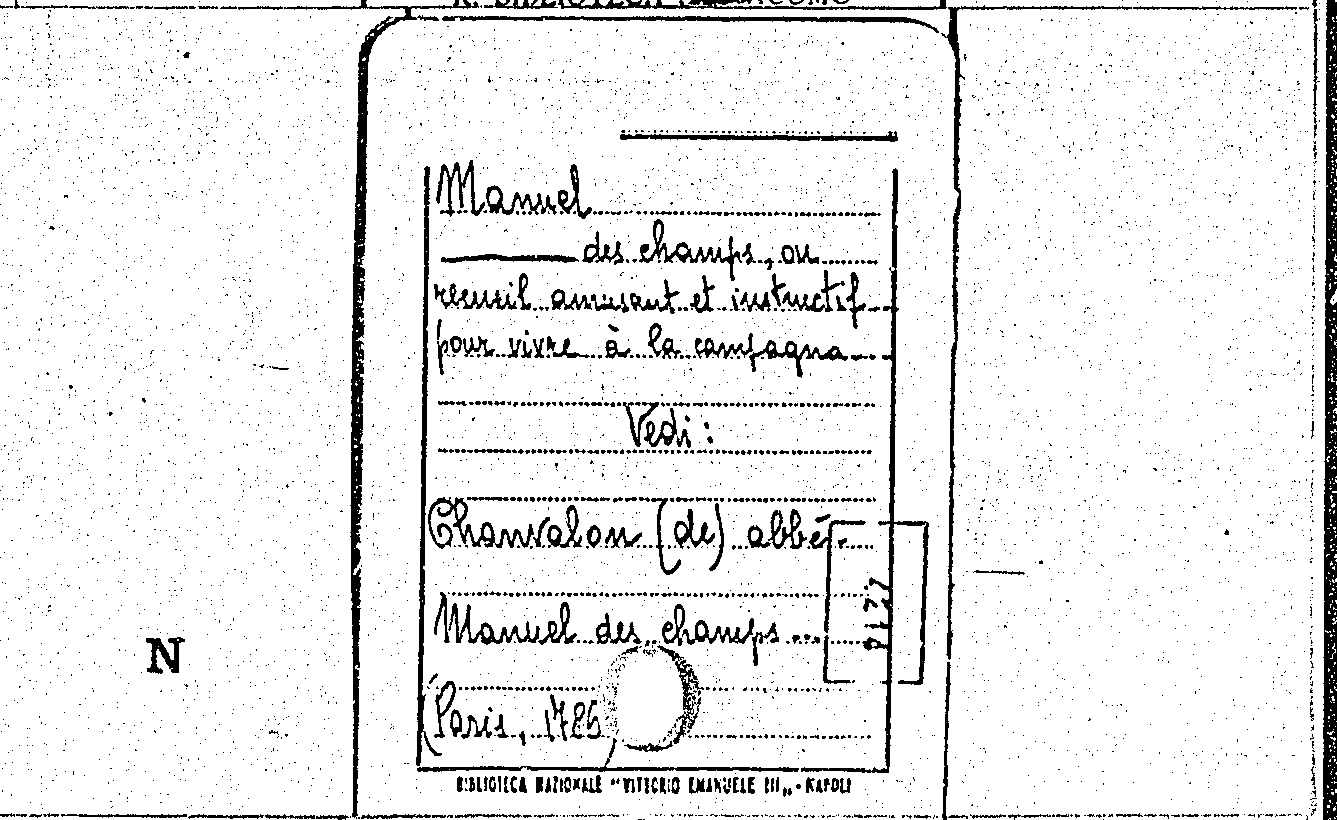 Manuel
des champs, ou
recueil amusant et instructif
pour vivre à la campagna
Vedi:
Chanvalon (de) abbé
Manuel des champs ...
(Paris, 1785
N
BIBLIOTECA NAZIONALE "VITTORIO EMANUELE III" - NAPOLI